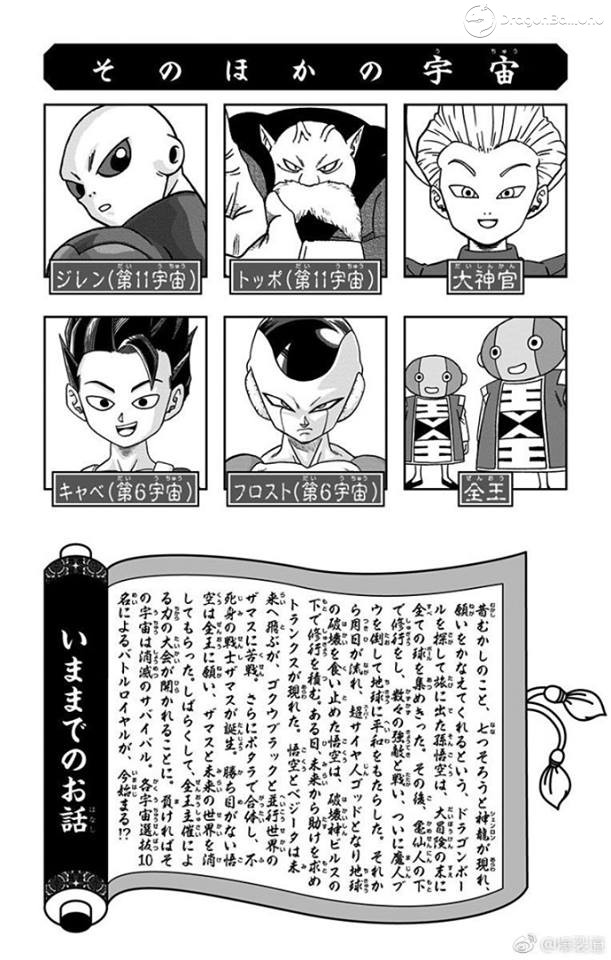 DragonBallUno
そのほかの宇宙
ジレン(第11宇宙)
トッポ(第11宇宙)
大神官
キャベ(第6宇宙)
フロスト(第6宇宙)
全王
いままでのお話
昔むかしのこと、七つそろうと神龍が現れ、
願いをかなえてくれるという、ドラゴンボー
ルを探して旅に出た孫悟空は、大冒険の末に
全ての球を集めきった。その後、亀仙人の下
で修行をし、数々の強敵と戦い、ついに魔人ブ
ウを倒して地球に平和をもたらした。それか
ら月日が流れ、超サイヤ人ゴッドとなり地球
の破壊を食い止めた悟空は、破壊神ビルスの
下で修行を積む。ある日、未来から助けを求め
トランクスが現れた。悟空とベジータは未
来へ飛ぶが、ゴクウブラックと並行世界の
ザマスに苦戦。さらにポタラで合体し、不
死身の戦士ザマスが誕生。勝ち目がない悟
空は全王に願い、ザマスと未来の世界を消
してもらった。しばらくして、全王主催によ
る力の大会が開かれることに。負ければそ
の宇宙は消滅のサバイバル。各宇宙選抜10
名によるバトルロイヤルが、今始まる!?